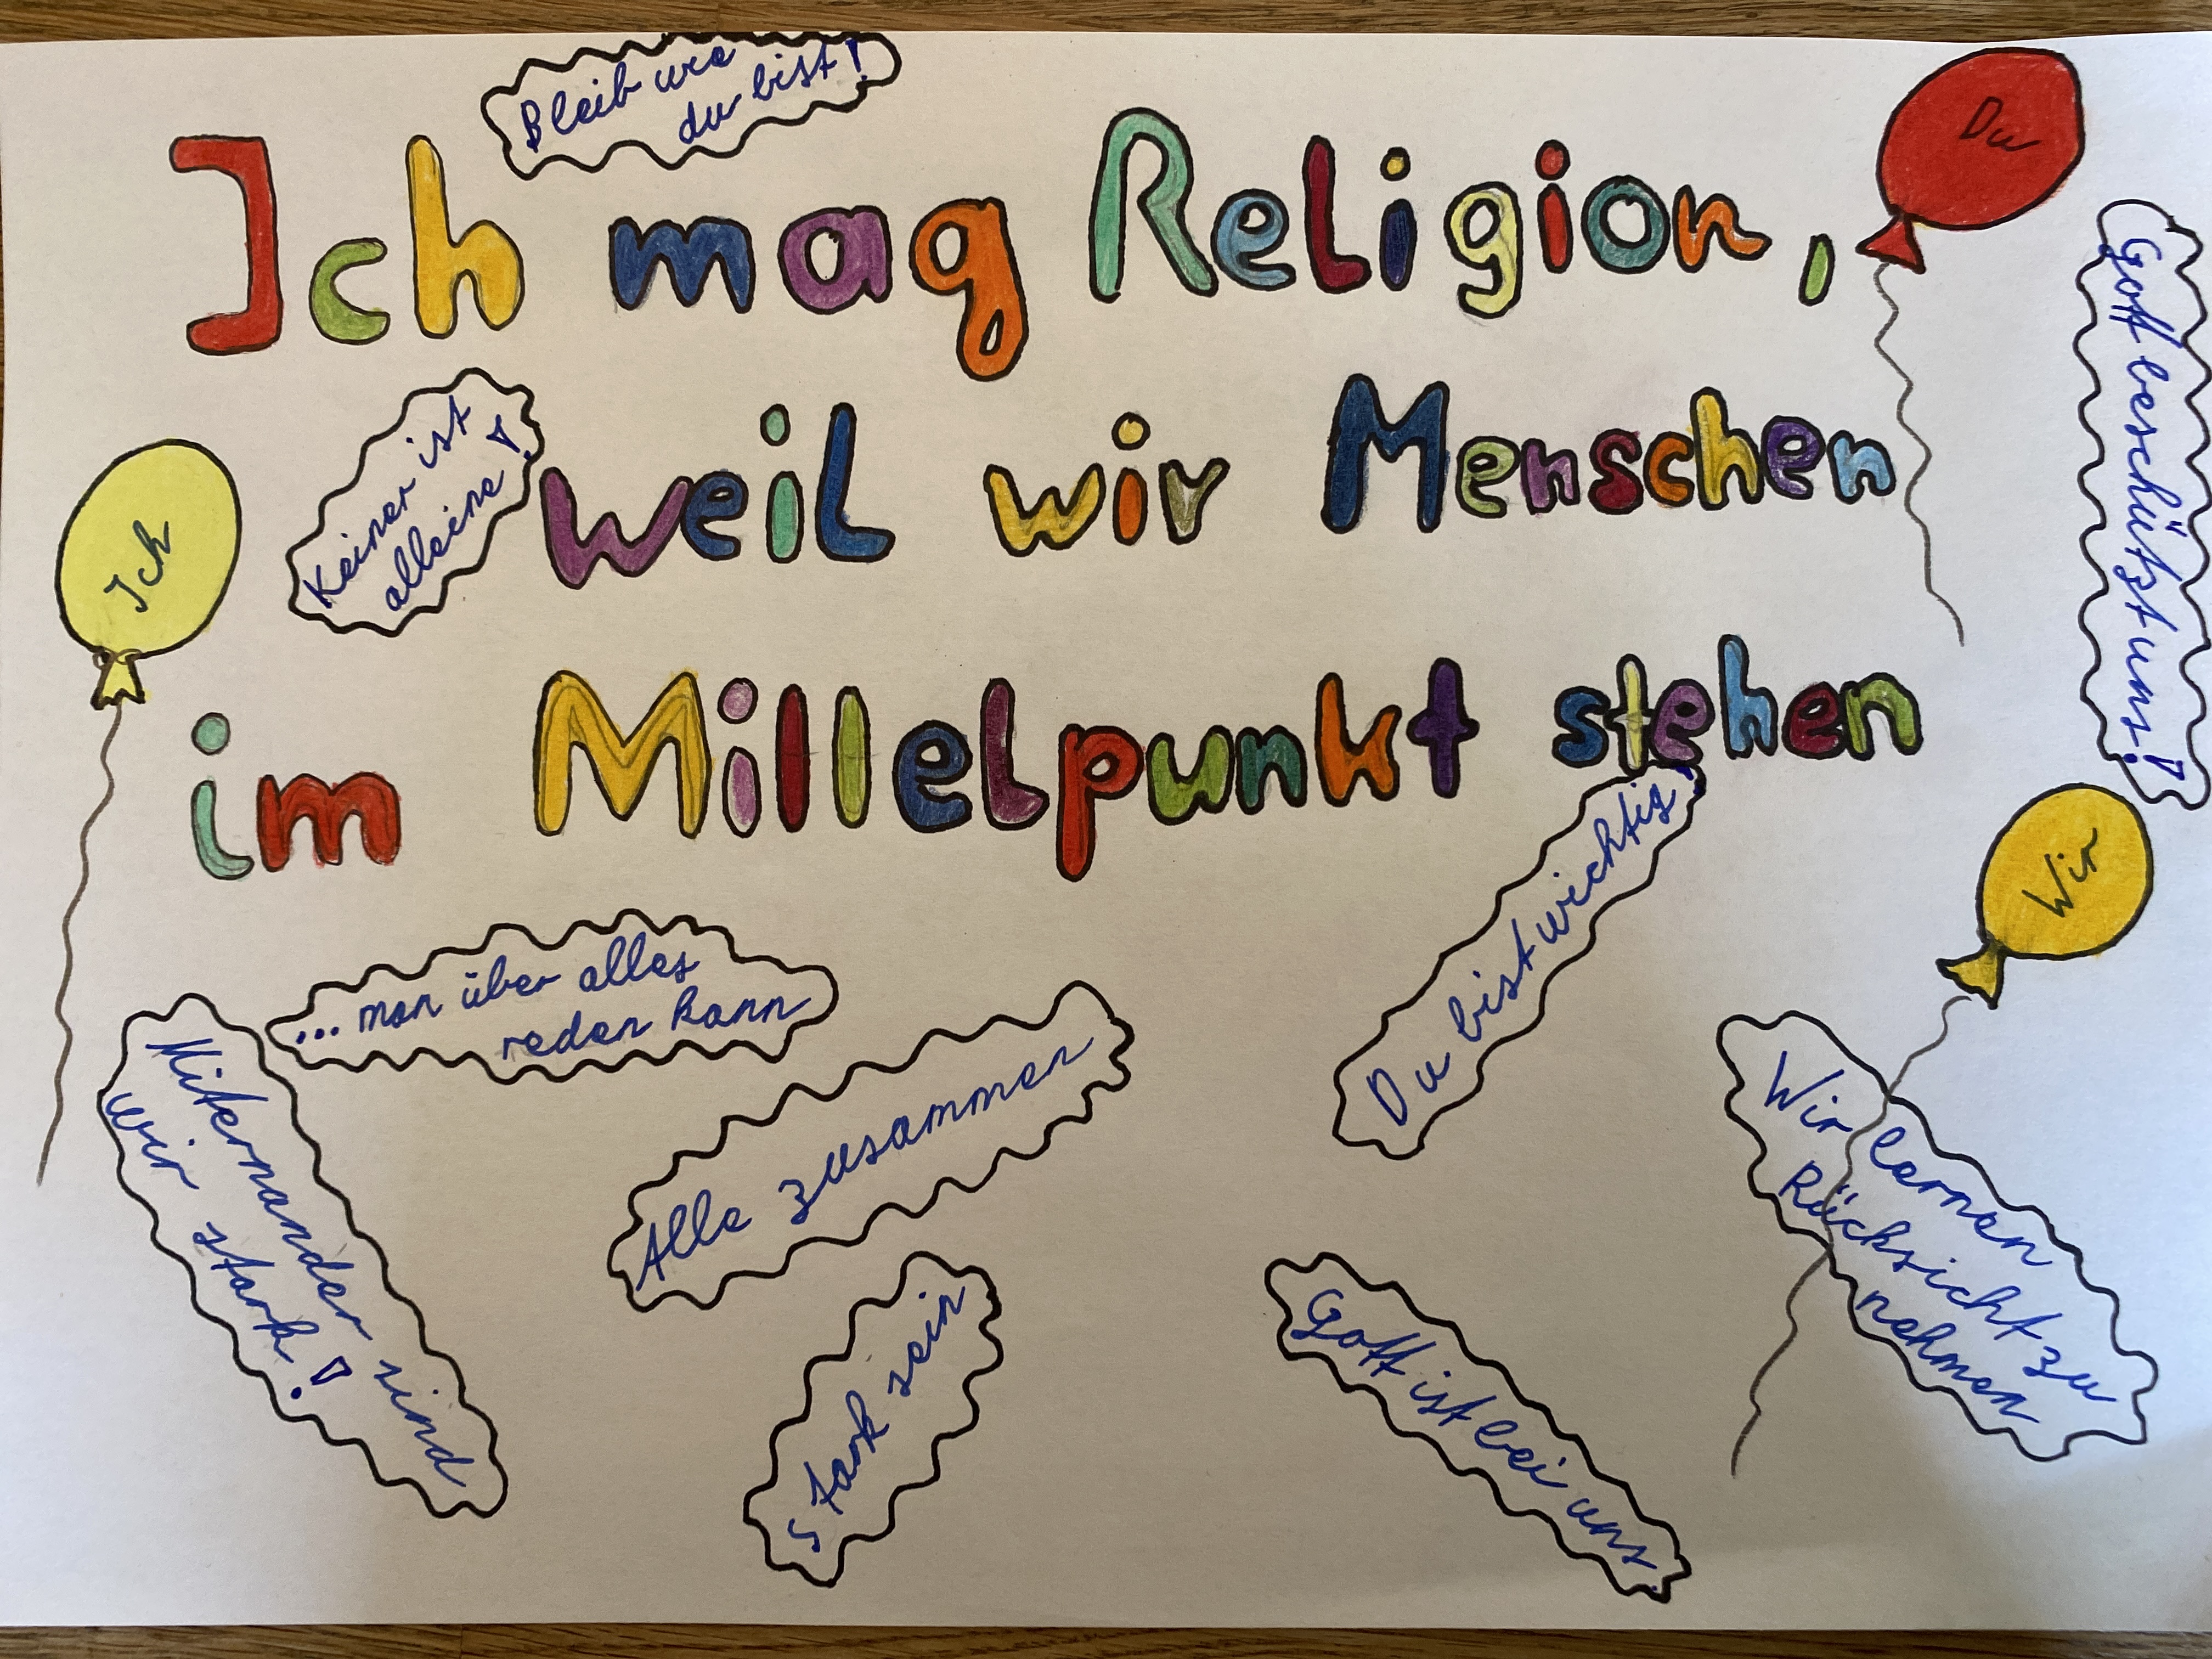 Bleib wie
du bist!
Ich mag Religion,
Du
Gott beschützt uns!
Keiner ist
alleine!
weil wir Menschen
Ich
im Millelpunkt stehen
Wir
Du bist wichtig
... man über alles
reden kann
Miternander sind
wir stark!
Alle zusammen
Wir lernen
Rücksicht zu
nehmen
stark sein
Gott ist bei uns